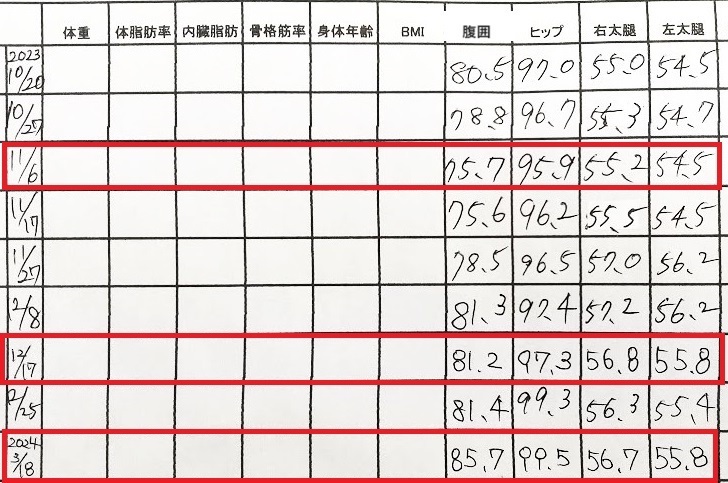 体重 体脂肪率 内臓脂肪 骨格筋率 身体年齢 BMI 腹囲 ヒップ 右太腿 左太腿
2023 10/20 80.5 97.0 55.0 54.5
10/27 78.8 96.7 55.3 54.7
11/6 75.7 95.9 55.2 54.5
11/17 75.6 96.2 55.5 54.5
11/27 78.5 96.5 57.0 56.2
12/8 81.3 97.4 57.2 56.2
12/17 81.2 97.3 56.8 55.8
12/25 81.4 99.3 56.3 55.4
2024 3/18 85.7 99.5 56.7 55.8